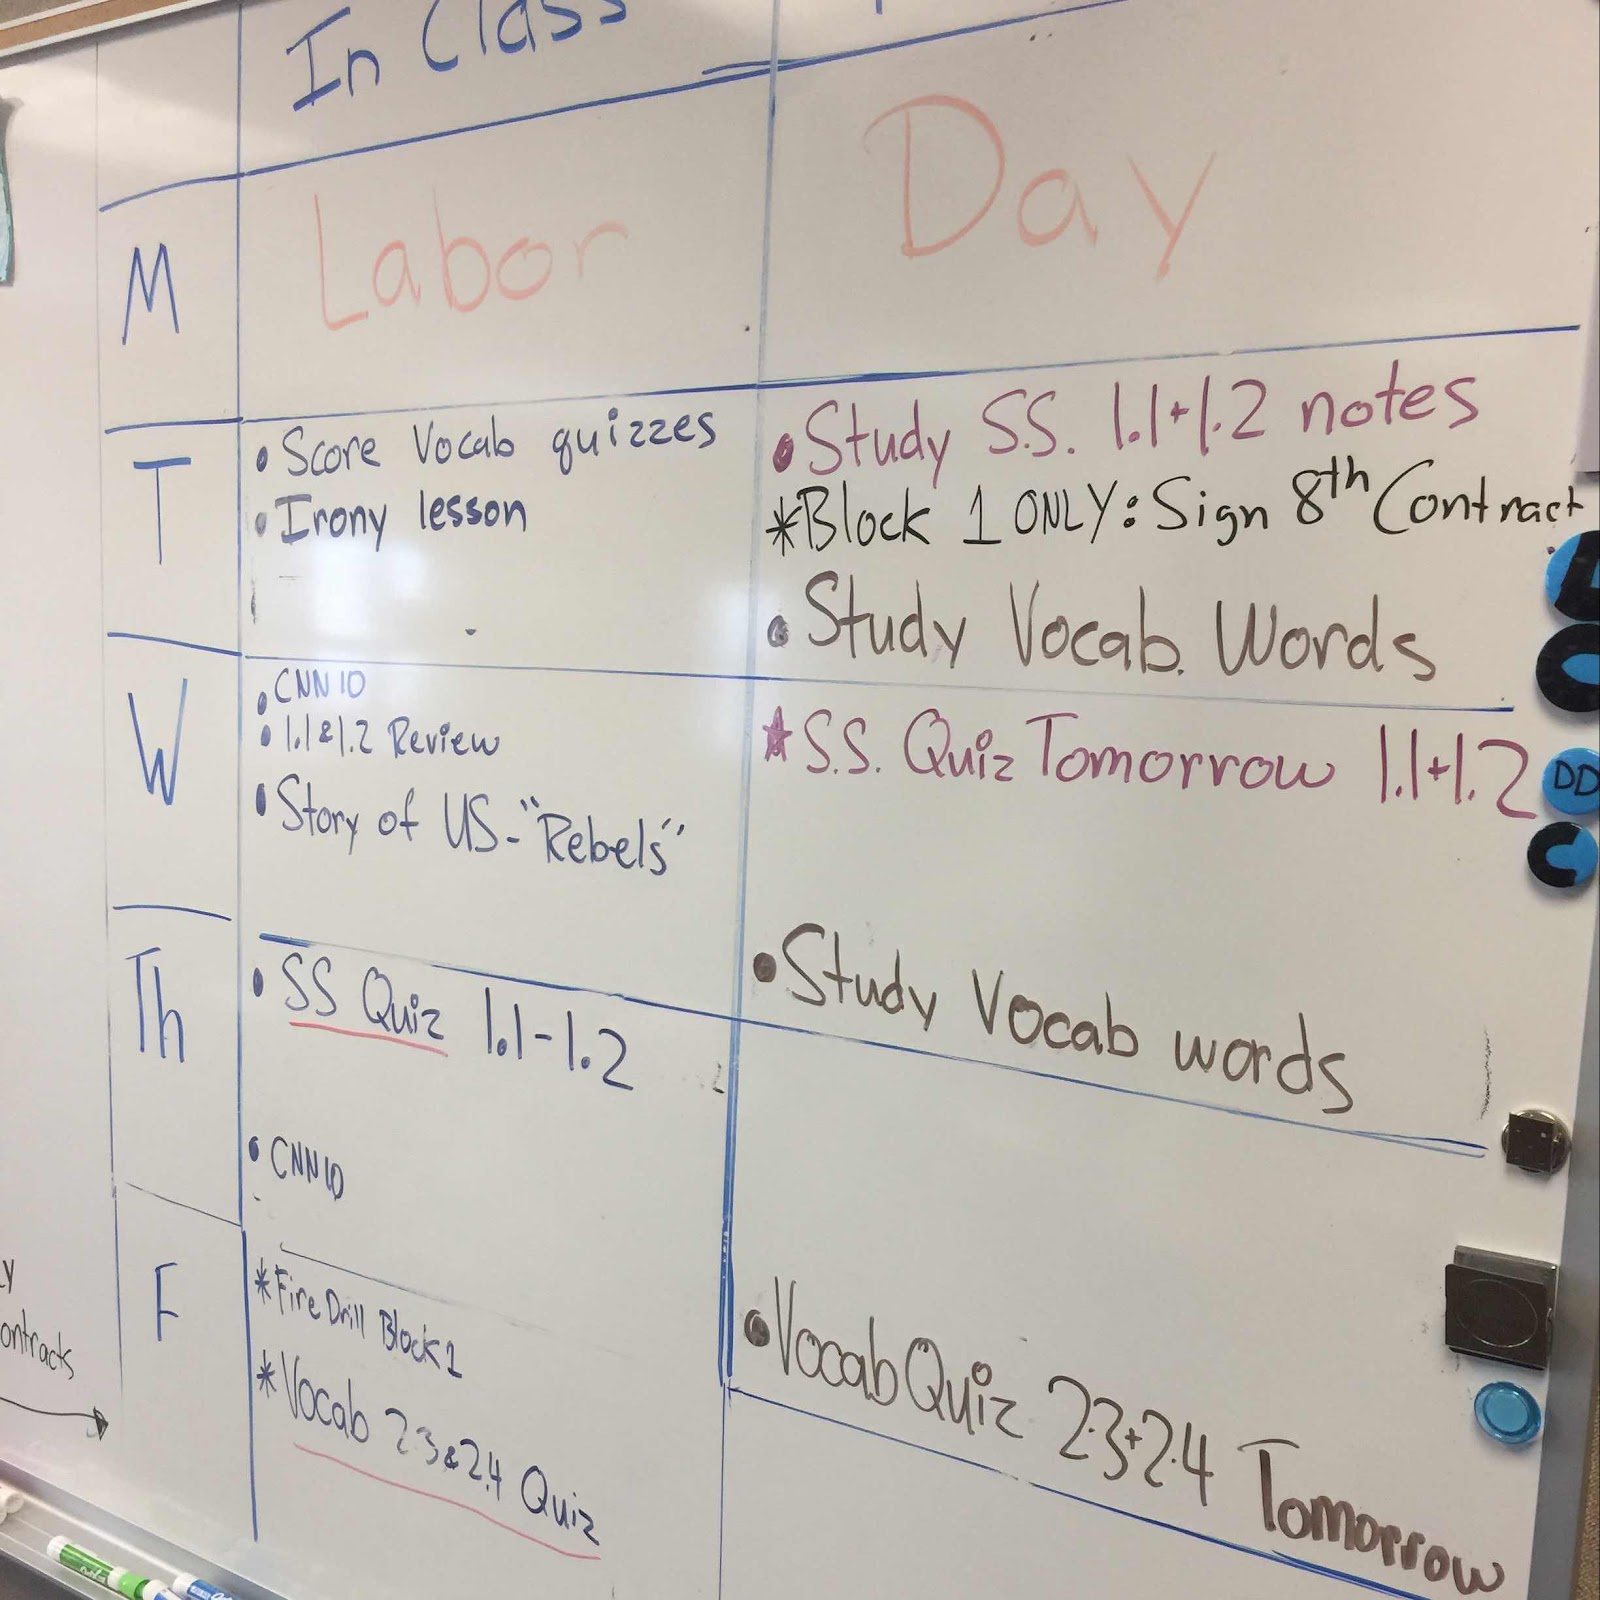 In Class
Labor Day
M
T
• Score Vocab quizzes
• Irony lesson
• Study S.S. 1.1+1.2 notes
*Block 1 ONLY: Sign 8th Contract
• Study Vocab. Words
W
• CNN10
• 1.1&1.2 Review
• Story of US - "Rebels"
★ S.S. Quiz Tomorrow 1.1+1.2
• Study Vocab words
Th
• SS Quiz 1.1-1.2
• CNN10
• Vocab Quiz 2.3+2.4 Tomorrow
F
* Fire Drill Block 1
* Vocab 2.3&2.4 Quiz
ontracts
DD